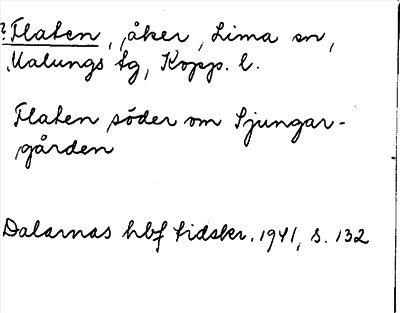 ?Flaten, åker, Lima sn,
Malungs tg, Kopp. l.
Flaten söder om Ljungar-
gården
Dalarnas hbf tidskr. 1941, s. 132